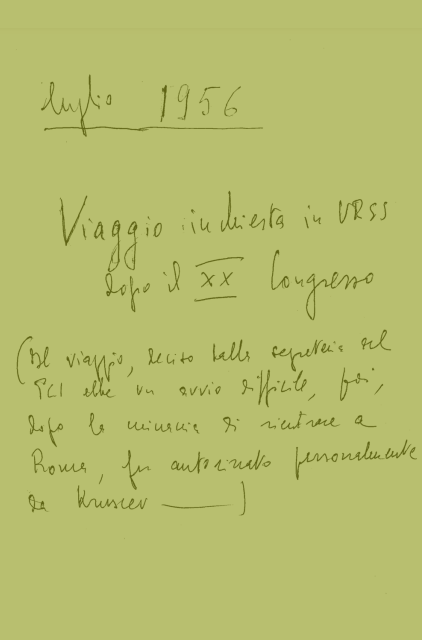 luglio 1956
Viaggio inchiesta in URSS
dopo il XX Congresso
(Il viaggio, deciso dalla segreteria del
PCI ebbe un avvio difficile, poi,
dopo la minaccia di rientrare a
Roma, fu autorizzato personalmente
da Kruscev —)